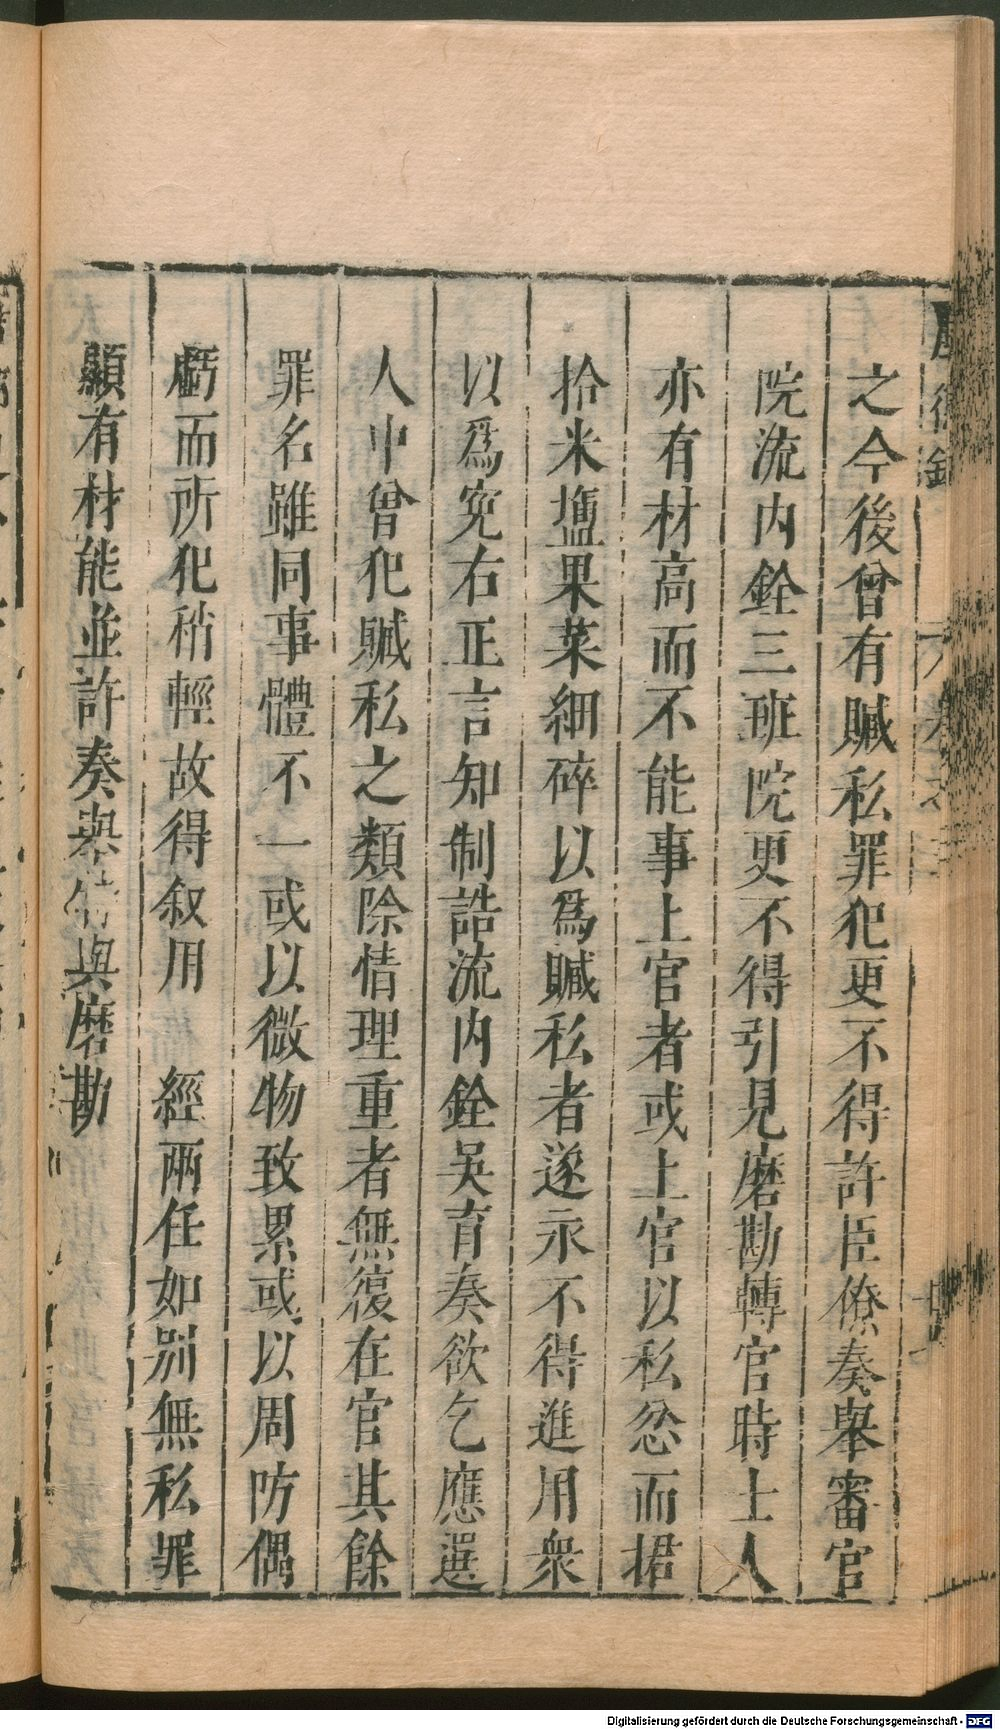 之今後曾有贓私罪犯更不得許臣僚奏舉審官
院流內銓三班院更不得引見磨勘轉官時士人
亦有材高而不能事上官者或上官以私忿而捃
拾米塩果菜細碎以爲贓私者遂永不得進用衆
以爲寃右正言知制誥流內銓吳育奏欲乞應選
人中曾犯贓私之類除情理重者無復在官其餘
罪名雖同事體不一或以微物致累或以周防偶
虧而所犯稍輕故得叙用　經兩任如別無私罪
顯有材能並許奏與磨勘
Digitalisierung gefördert durch die Deutsche Forschungsgemeinschaft - DFG